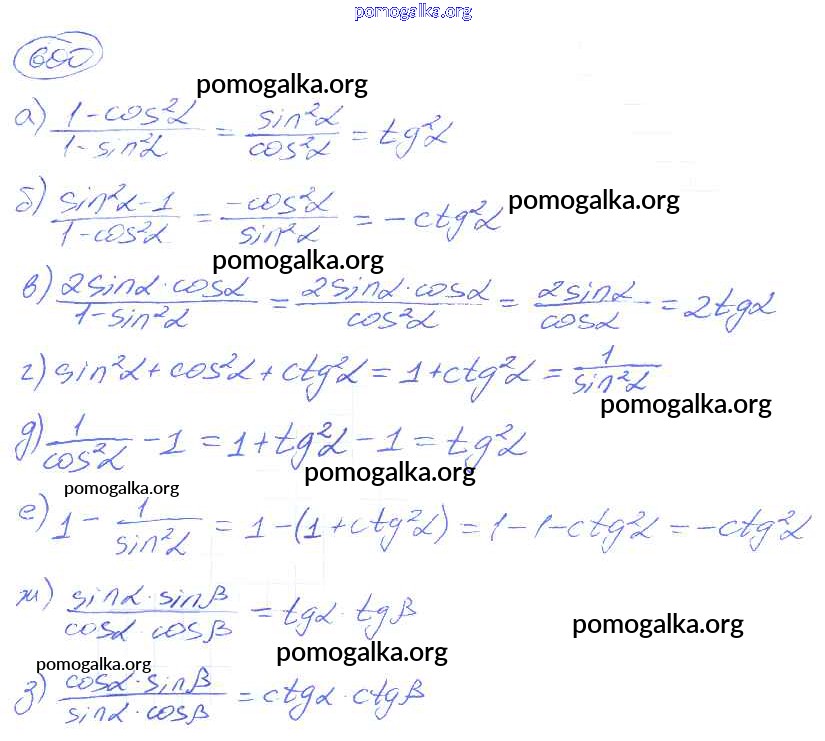 pomogalka.org
680
pomogalka.org
а) (1-cos²α)/(1-sin²α) = sin²α/cos²α = tg²α
б) (sin²α-1)/(1-cos²α) = -cos²α/sin²α = -ctg²α
pomogalka.org
pomogalka.org
в) (2sinα·cosα)/(1-sin²α) = (2sinα·cosα)/cos²α = 2sinα/cosα = 2tgα
г) sin²α+cos²α+ctg²α = 1+ctg²α = 1/sin²α
pomogalka.org
д) 1/cos²α - 1 = 1+tg²α - 1 = tg²α
pomogalka.org
pomogalka.org
е) 1 - 1/sin²α = 1-(1+ctg²α) = 1-1-ctg²α = -ctg²α
ж) (sinα·sinβ)/(cosα·cosβ) = tgα·tgβ
pomogalka.org
pomogalka.org
pomogalka.org
з) (cosα·sinβ)/(sinα·cosβ) = ctgα·ctgβ